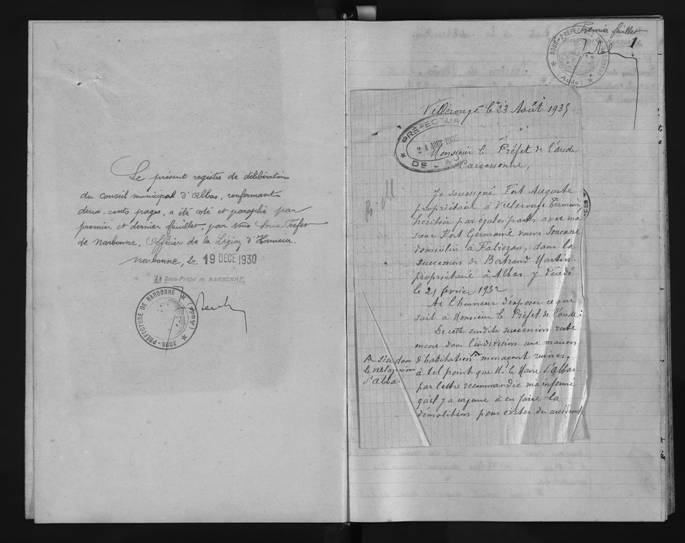 Le présent registre de délibération
du Conseil municipal d'Albas, renfermant
deux cents pages, a été coté et paraphé par
premier et dernier feuillet, par nous Sous-Préfet
de Narbonne, Officier de la Légion d'Honneur.
Narbonne, le 19 DECE 1930
Le Sous-Préfet de NARBONNE
SOUS-PREFECTURE DE NARBONNE (Aude)
Premier feuillet
1
(Aude)
le 23 Août 1935
PREFECTURE
DE
Monsieur le Préfet de l'Aude
Carcassonne,
Je soussigné Fort Auguste
propriétaire à Villerouge Termenès
héritier par égales parts avec ma
sœur Fort Germaine
domicilié à dans la
succession de Bertrand Martin
propriétaire à Albas y décédé
le 21 février 1932
A l'honneur d'exposer ce que
suit à Monsieur le Préfet de l'Aude:
De cette susdite succession reste
encore dans l'indivision une maison
d'habitation menaçant ruines,
à tel point que M. le Maire d'Albas
par lettre recommandée m'a informé
qu'il y a urgence à en faire la
démolition pour éviter des accidents
d'Albas